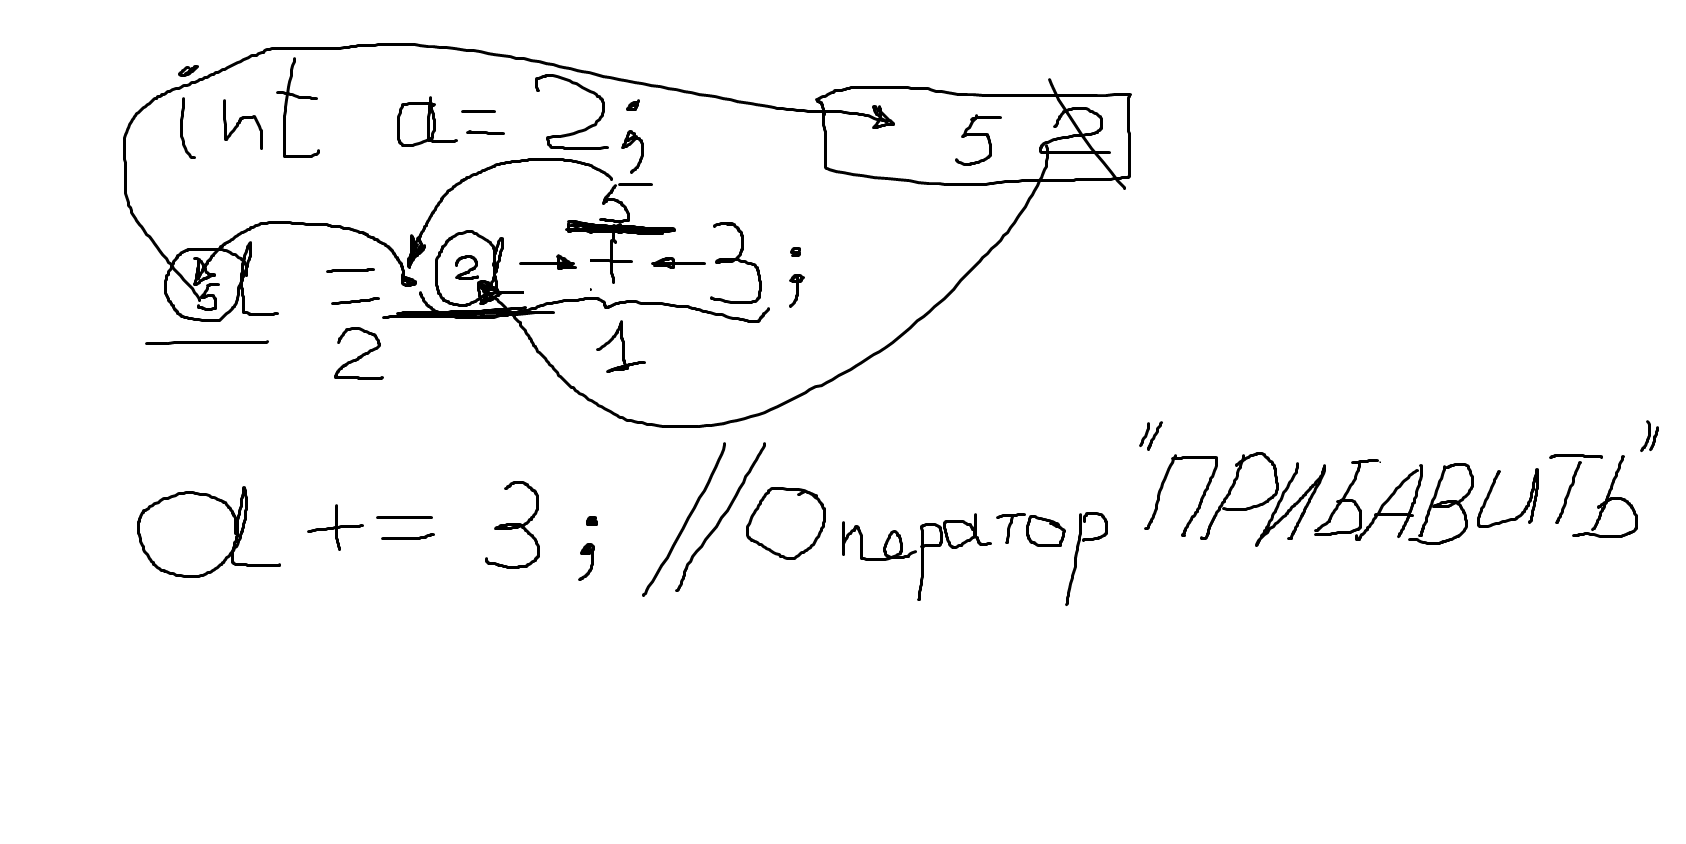 int a=2;
5 2
5
a = a + 3;
5 2
2 1
a += 3; // Оператор "ПРИБАВИТЬ"